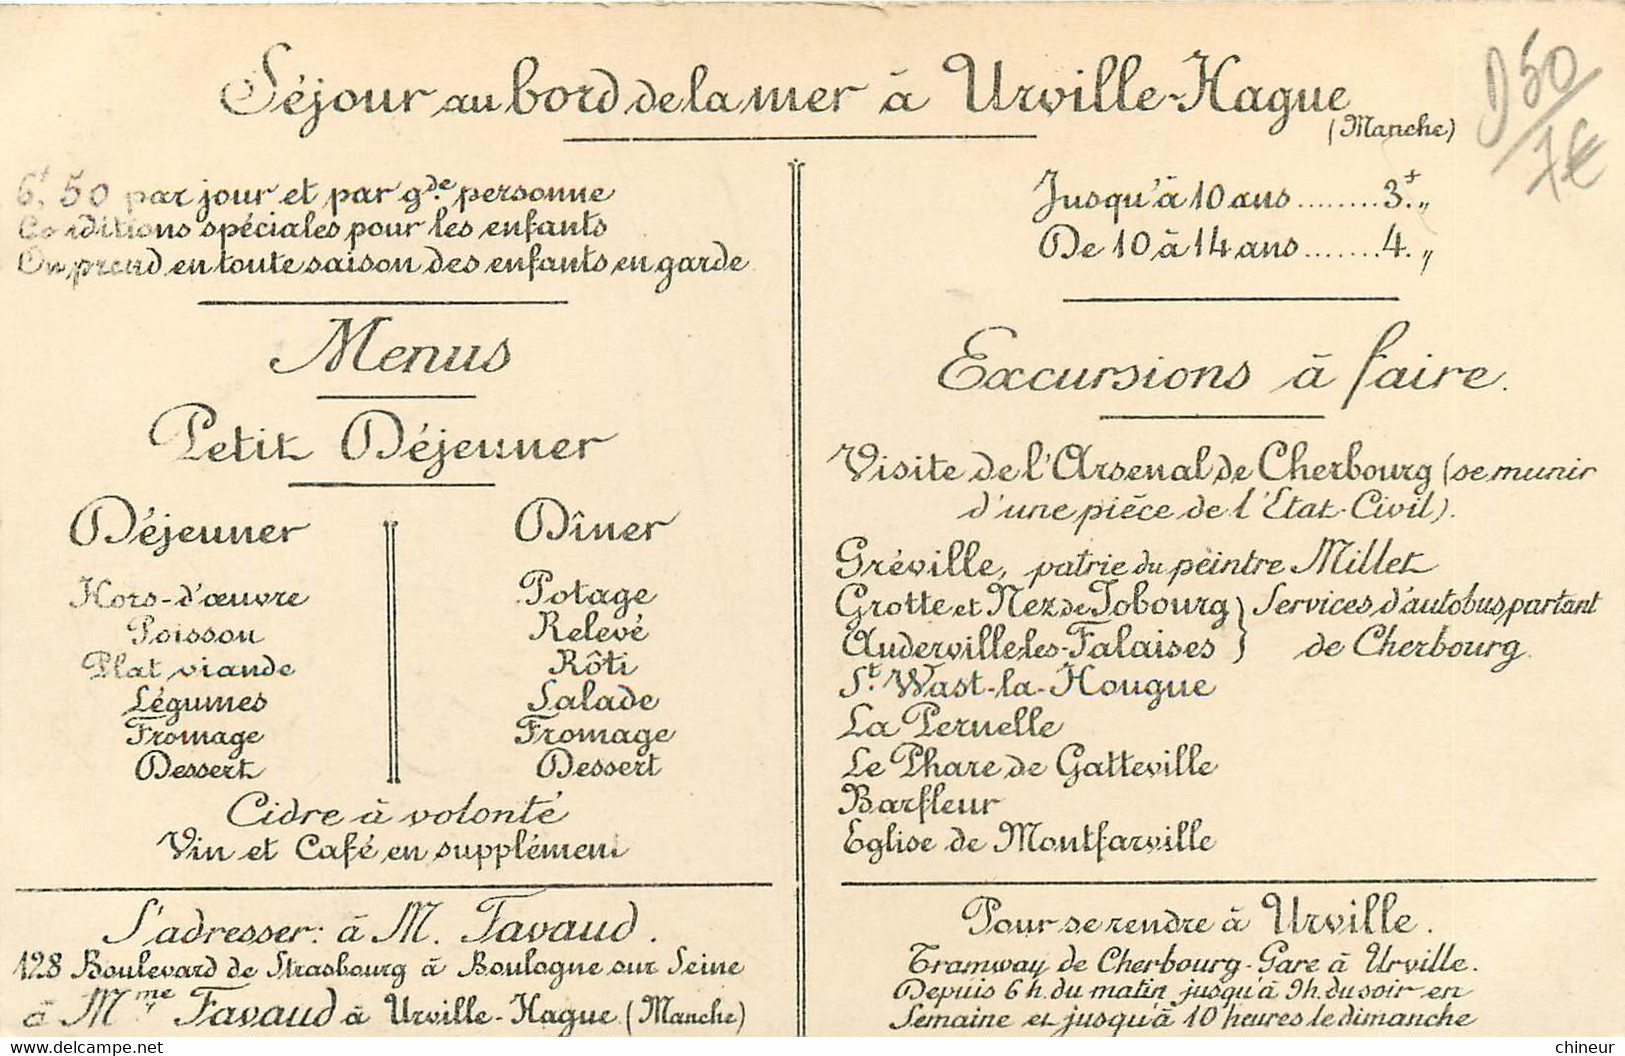 Séjour au bord de la mer à Urville-Hague
(Manche)
D50
7€
6f,50 par jour et par gde personne
Conditions spéciales pour les enfants
On prend en toute saison des enfants en garde
Menus
Petit Déjeuner
Déjeuner
Hors-d'œuvre
Poisson
Plat viande
Légumes
Fromage
Dessert
Dîner
Potage
Relevé
Rôti
Salade
Fromage
Dessert
Cidre à volonté
Vin et Café en supplément
S'adresser: à M. Favaud.
128 Boulevard de Strasbourg à Boulogne sur Seine
à Mme Favaud à Urville-Hague (Manche)
Jusqu'à 10 ans ........ 3f. „
De 10 à 14 ans ........ 4. „
Excursions à faire.
Visite de l'Arsenal de Cherbourg (se munir
d'une pièce de l'Etat-Civil).
Gréville, patrie du peintre Millet
Grotte et Nez de Jobourg } Services d'autobus partant
Auderville les-Falaises } de Cherbourg.
St. Wast-la-Hougue
La Pernelle
Le Phare de Gatteville
Barfleur
Eglise de Montfarville
Pour se rendre à Urville.
Tramway de Cherbourg-Gare à Urville.
Depuis 6 h. du matin jusqu'à 9h. du soir en
Semaine et jusqu'à 10 heures le dimanche
https://www.delcampe.net
chineur